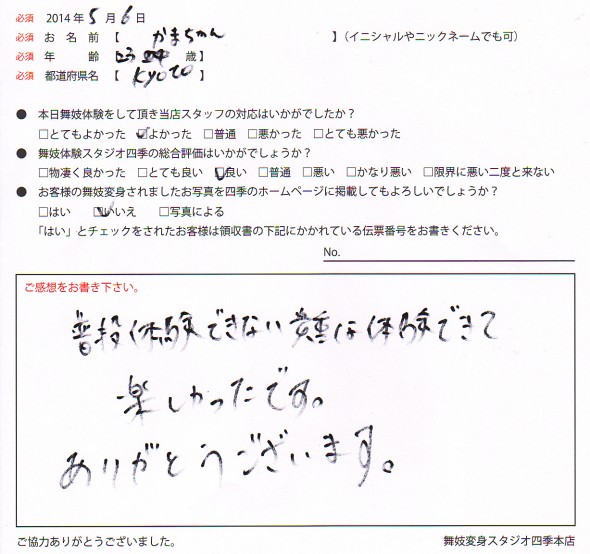 必須 2014年5月6日
必須 お名前【 かまちゃん 】(イニシャルやニックネームでも可)
必須 年齢【 歳】
必須 都道府県名【 KYOTO 】
● 本日舞妓体験をして頂き当店スタッフの対応はいかがでしたか?
□とてもよかった ☑よかった □普通 □悪かった □とても悪かった
● 舞妓体験スタジオ四季の総合評価はいかがでしょうか?
□物凄く良かった □とても良い ☑良い □普通 □悪い □かなり悪い □限界に悪い二度と来ない
● お客様の舞妓変身されましたお写真を四季のホームページに掲載してもよろしいでしょうか?
□はい ☑いいえ □写真による
「はい」とチェックをされたお客様は領収書の下記にかかれている伝票番号をお書きください。
No.
ご感想をお書き下さい。
普段体験できない貴重な体験できて
楽しかったです。
ありがとうございます。
ご協力ありがとうございました。 舞妓変身スタジオ四季本店